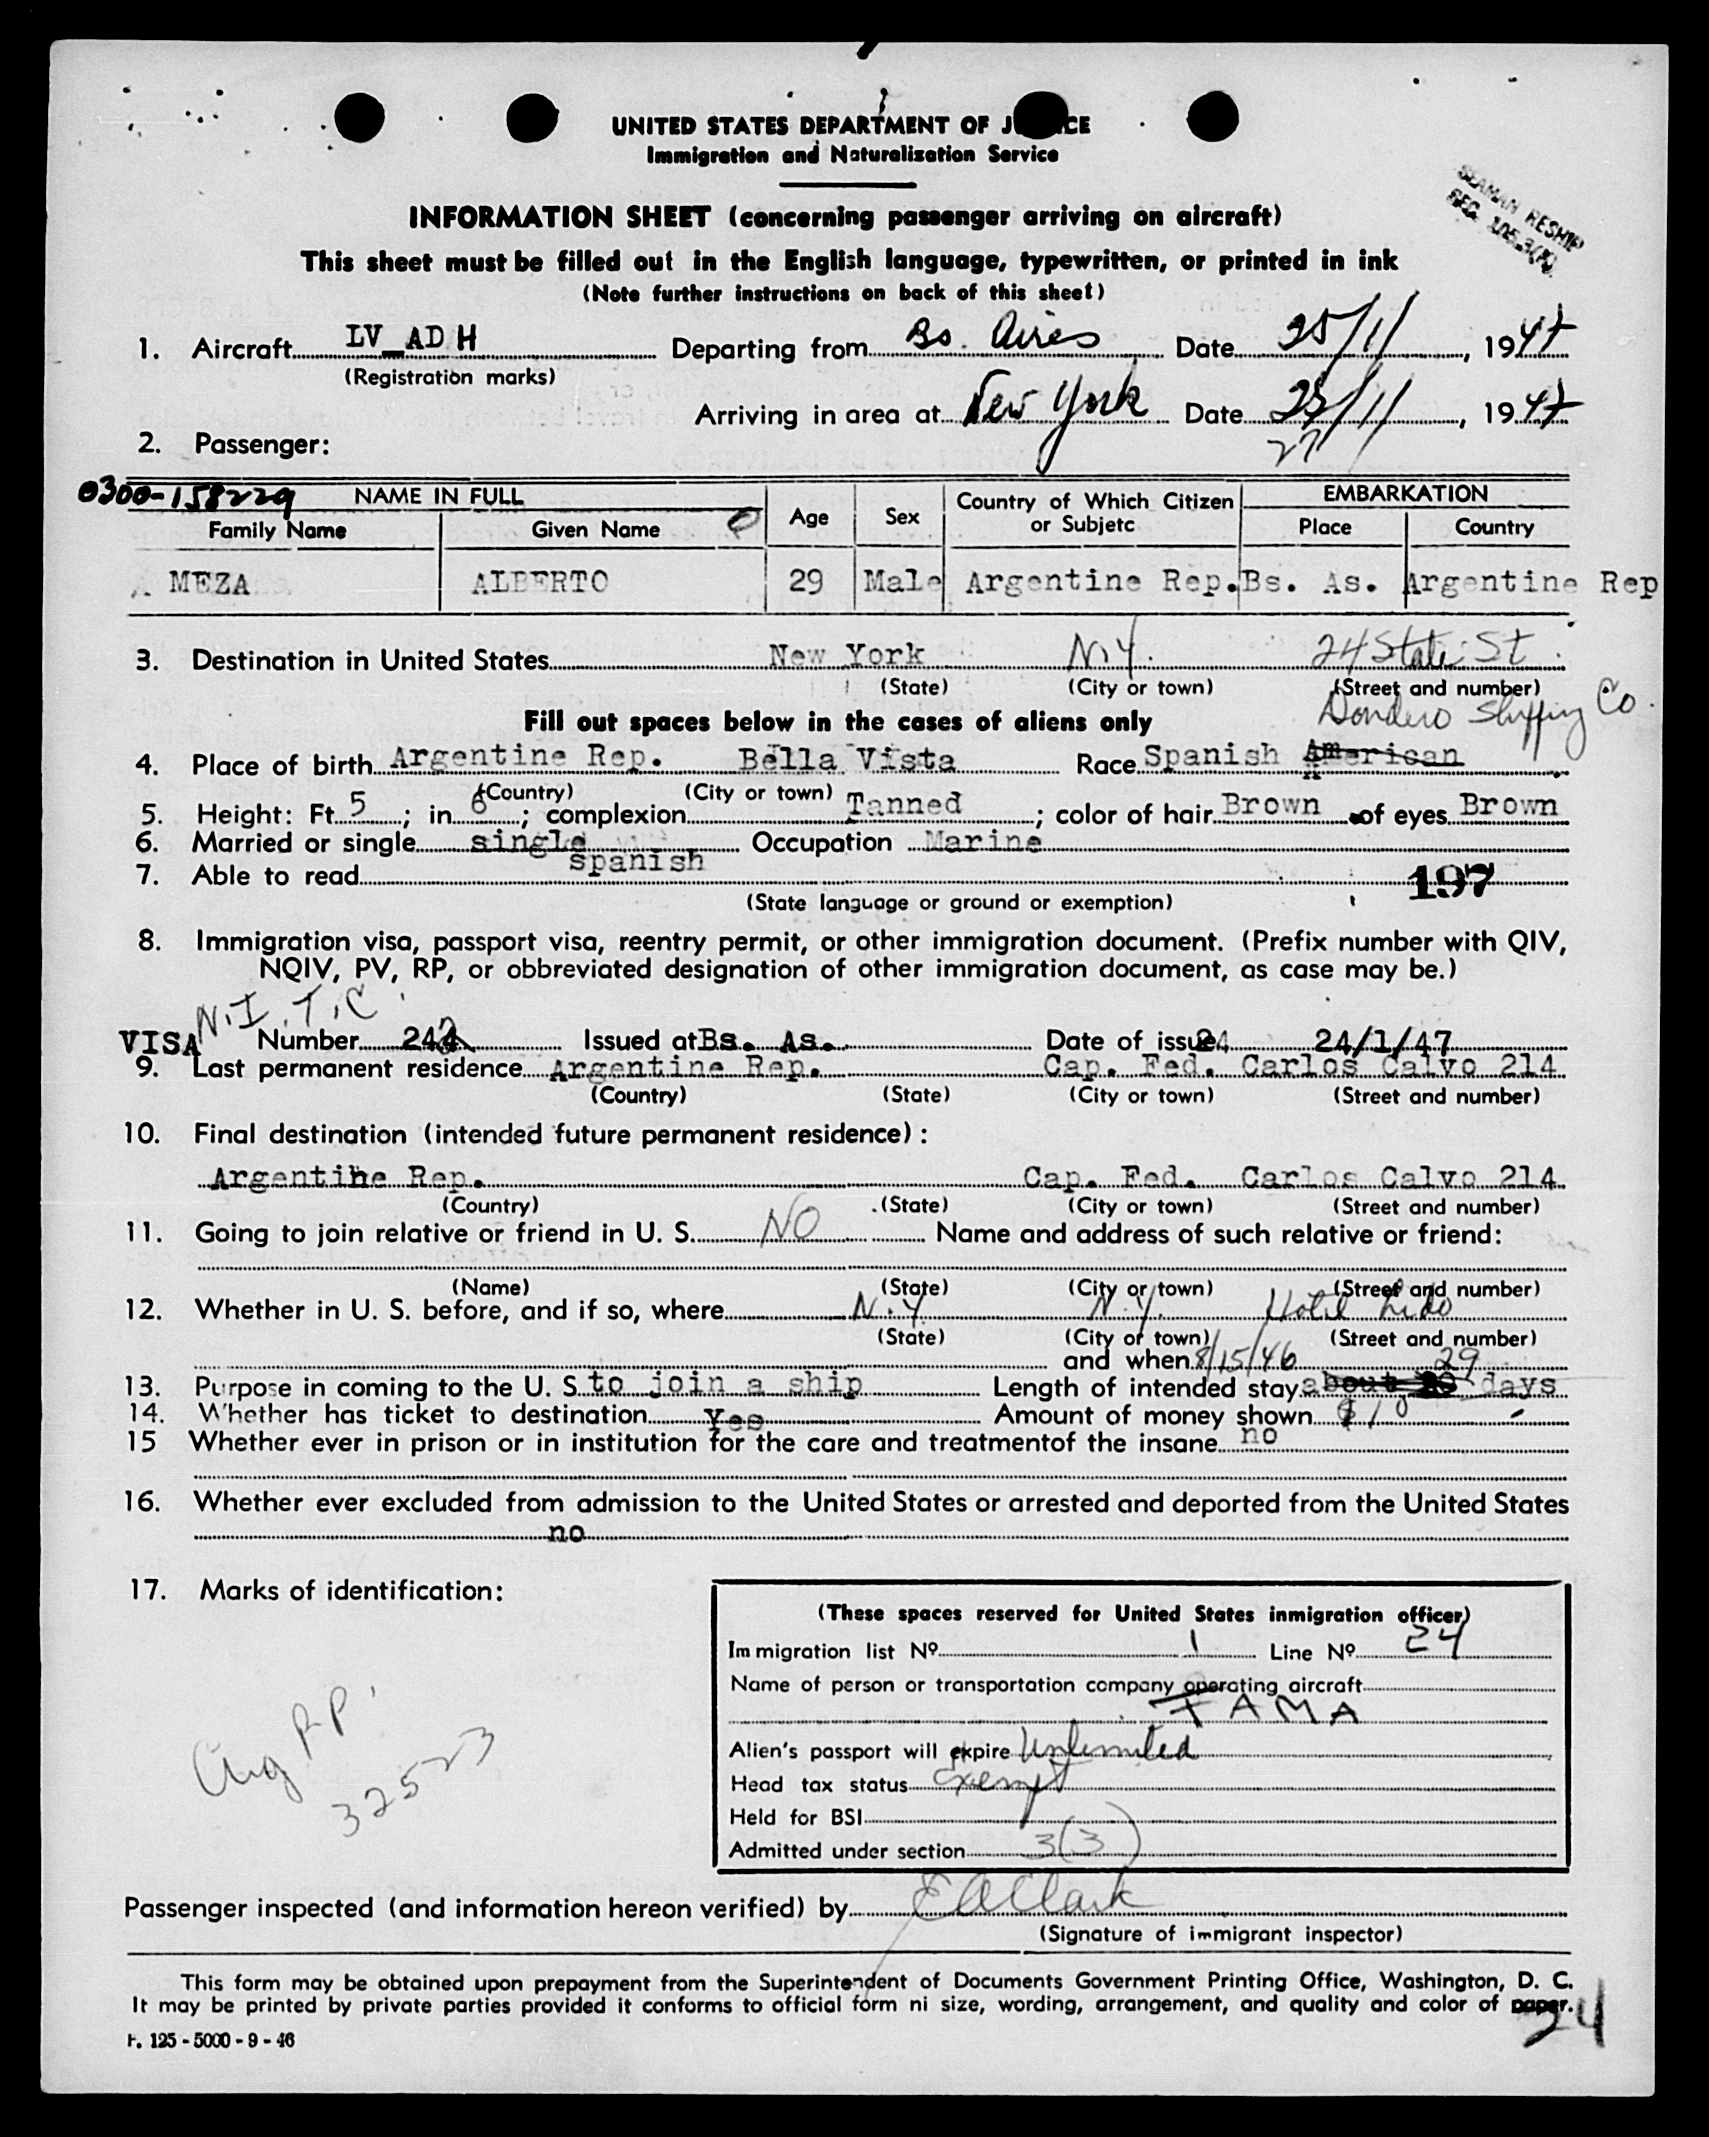 UNITED STATES DEPARTMENT OF J CE
Immigration and Naturalization Service
SEAMAN RESHIP
INFORMATION SHEET (concerning passenger arriving on aircraft)
This sheet must be filled out in the English language, typewritten, or printed in ink
(Note further instructions on back of this sheet)
1. Aircraft LV_ADH Departing from Bs. Aires Date 25/11/, 1947
(Registration marks)
Arriving in area at New York Date 25/11/, 1947
27
2. Passenger:
0300-158229 NAME IN FULL Age Sex Country of Which Citizen or Subjetc EMBARKATION
Family Name Given Name Place Country
MEZA ALBERTO 29 Male Argentine Rep. Bs. As. Argentine Rep
3. Destination in United States New York N.Y. 24 State St.
(State) (City or town) (Street and number)
Dondero Shipping Co.
Fill out spaces below in the cases of aliens only
4. Place of birth Argentine Rep. Bella Vista Race Spanish American
(Country) (City or town)
5. Height: Ft. 5; in. 6; complexion Tanned; color of hair Brown of eyes Brown
6. Married or single single Occupation Marine
7. Able to read spanish
197
(State language or ground or exemption)
8. Immigration visa, passport visa, reentry permit, or other immigration document. (Prefix number with QIV,
NQIV, PV, RP, or obbreviated designation of other immigration document, as case may be.)
N.I.T.C.
VISA Number 242 Issued at Bs. As. Date of issue 24 24/1/47
9. Last permanent residence Argentine Rep. Cap. Fed. Carlos Calvo 214
(Country) (State) (City or town) (Street and number)
10. Final destination (intended future permanent residence):
Argentine Rep. Cap. Fed. Carlos Calvo 214
(Country) (State) (City or town) (Street and number)
11. Going to join relative or friend in U. S. NO Name and address of such relative or friend:
(Name) (State) (City or town) (Street and number)
12. Whether in U. S. before, and if so, where N.Y. N.Y. Hotel Lido
(State) (City or town) (Street and number)
and when 8/15/46
13. Purpose in coming to the U. S. to join a ship Length of intended stay about 29 days
14. Whether has ticket to destination Yes Amount of money shown $10
15 Whether ever in prison or in institution for the care and treatmentof the insane no
16. Whether ever excluded from admission to the United States or arrested and deported from the United States
no
17. Marks of identification:
Arg PP.
32523
(These spaces reserved for United States inmigration officer)
Immigration list Nº 1 Line Nº 24
Name of person or transportation company operating aircraft
FAMA
Alien's passport will expire Unlimited
Head tax status Exempt
Held for BSI
Admitted under section 3(3)
Passenger inspected (and information hereon verified) by E A Clark
(Signature of immigrant inspector)
This form may be obtained upon prepayment from the Superintendent of Documents Government Printing Office, Washington, D. C.
It may be printed by private parties provided it conforms to official form ni size, wording, arrangement, and quality and color of paper.
24
F. 125 - 5000 - 9 - 46